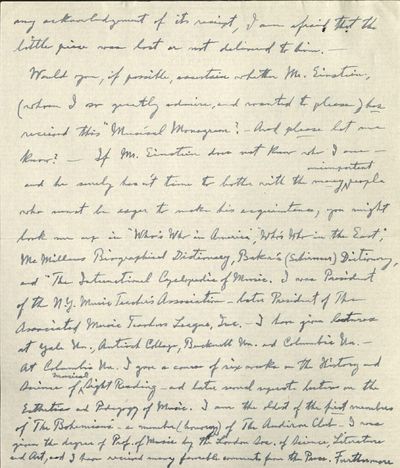 any acknowledgment of its receipt, I am afraid that the
little piece was lost or not delivered to him. —
Would you, if possible, ascertain whether Mr. Einstein,
(whom I so greatly admire, and wanted to please) has
received this "Musical Monogram"? - And please let me
know? — If Mr. Einstein does not know who I am —
and he surely hasn't time to bother with the many unimportant people
who must be eager to make his acquaintance, you might
look me up in "Who's Who in America", Who's Who in the East",
Mc Millens Biographical Dictionary, Baker's (Schirmer) Dictionary,
and "The International Cyclopedia of Music. I was President
of the N.Y. Music Teachers Association — later President of The
Associated Music Teachers League, Inc. — I have given lectures
at Yale Un., Antioch College, Bucknell Un. and Columbia Un. —
At Columbia Un. I gave a course of six weeks on the History and
Science of musical Sight Reading — and later several separate lectures on the
Esthetics and Pedagogy of Music. I am the oldest of the first members
of "The Bohemians" — a member (honorary) of The Audiron Club — I was
given the degree of Prof. of Music by the London Soc. of Science, Literature
and Art, and I have received many favorable comments from the Press. Furthermore